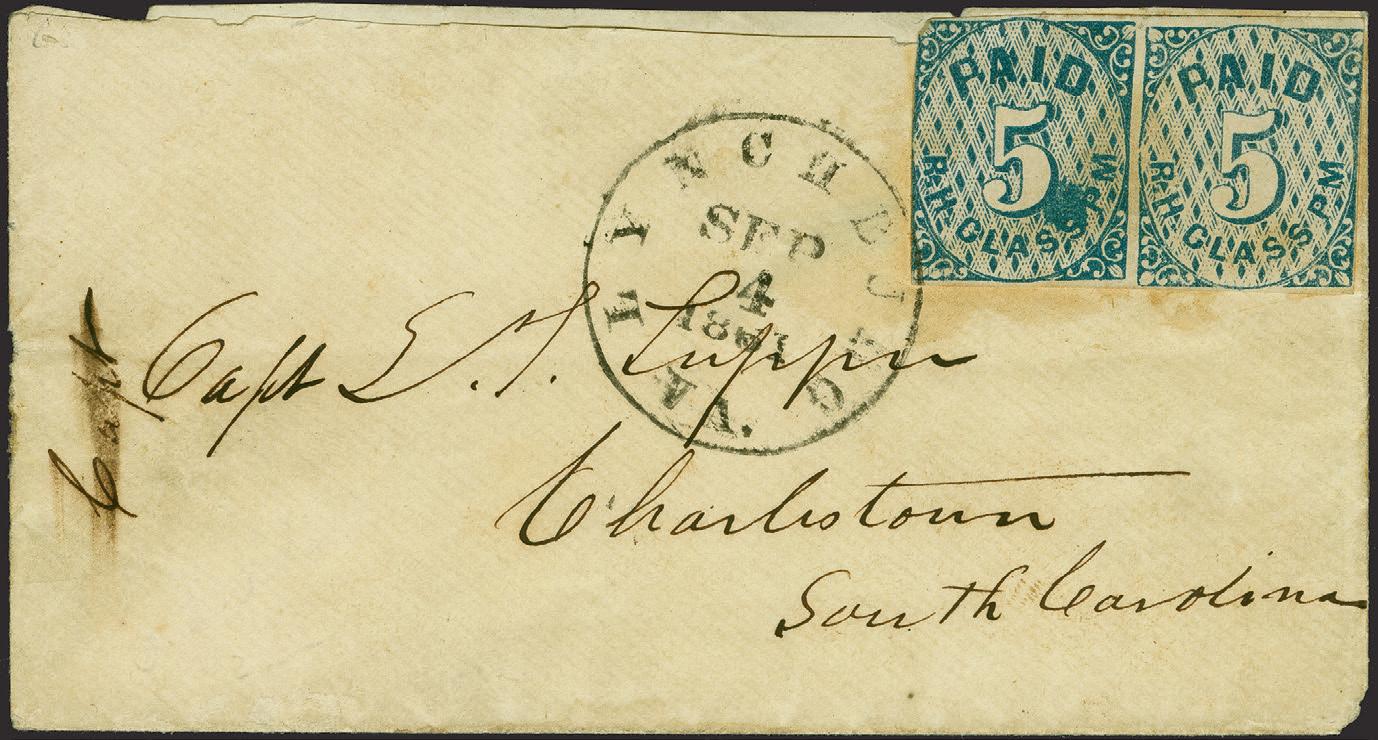 PAID 5 R.H. GLASS. PM
PAID 5 R.H. GLASS. PM
LYNCHBURG VA.
SEP
4
1861
Capt
Capt
Charlestown
South Carolina